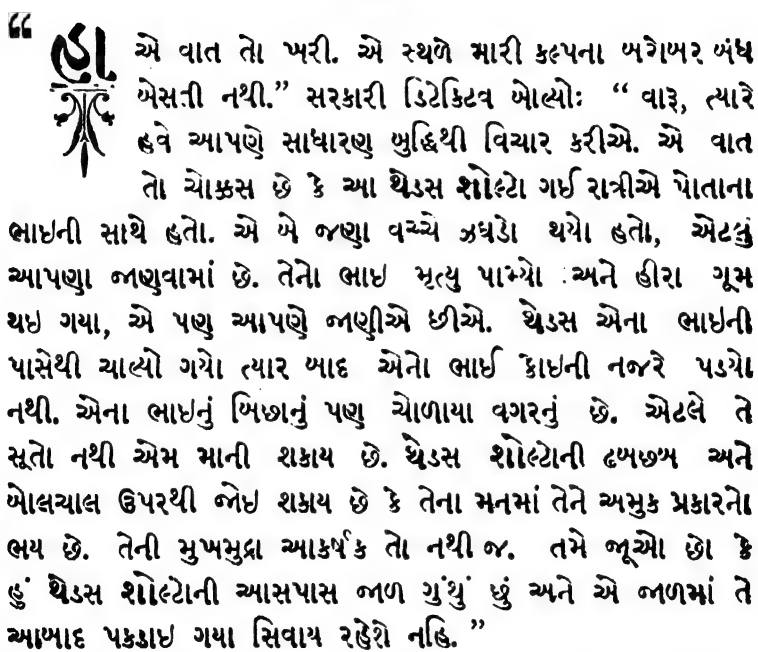 “ હા એ વાત તો ખરી. એ સ્થળે મારી કલ્પના બરોબર બંધ
બેસતી નથી.” સરકારી ડિટેક્ટિવ બોલ્યોઃ “ વારૂ, ત્યારે
હવે આપણે સાધારણ બુદ્ધિથી વિચાર કરીએ. એ વાત
તો ચોક્કસ છે કે આ થેડસ શોલ્ટો ગઈ રાત્રીએ પોતાના
ભાઇની સાથે હતો. એ બે જણા વચ્ચે ઝઘડો થયો હતો, એટલું
આપણા જાણવામાં છે. તેનો ભાઇ મૃત્યુ પામ્યો અને હીરા ગૂમ
થઇ ગયા, એ પણ આપણે જાણીએ છીએ. થેડસ એના ભાઇની
પાસેથી ચાલ્યો ગયો ત્યાર બાદ એનો ભાઈ કોઇની નજરે પડયો
નથી. એના ભાઇનું બિછાનું પણ ચોળાયા વગરનું છે. એટલે તે
સૂતો નથી એમ માની શકાય છે. થેડસ શોલ્ટોની ઢબછબ અને
બોલચાલ ઉપરથી જોઇ શકાય છે કે તેના મનમાં તેને અમુક પ્રકારનો
ભય છે. તેની મુખમુદ્રા આકર્ષક તો નથી જ. તમે જૂઓ છો કે
હું થેડસ શોલ્ટોની આસપાસ જાળ ગુંથું છું અને એ જાળમાં તે
આબાદ પકડાઇ ગયા સિવાય રહેશે નહિ. ”